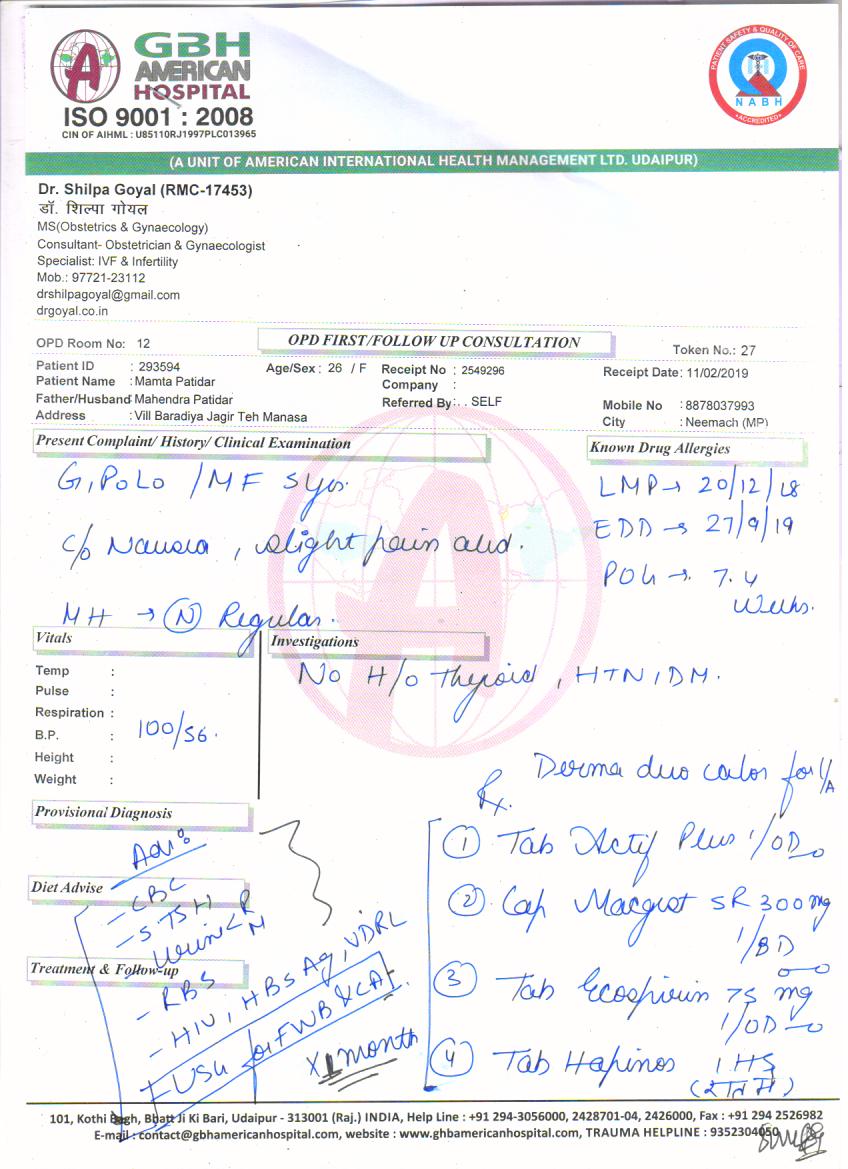 GBH
AMERICAN
HOSPITAL
ISO 9001 : 2008
CIN OF AIHML : U85110RJ1997PLC013965
PATIENT SAFETY & QUALITY OF CARE
NABH
ACCREDITED
(A UNIT OF AMERICAN INTERNATIONAL HEALTH MANAGEMENT LTD. UDAIPUR)
Dr. Shilpa Goyal (RMC-17453)
डॉ. शिल्पा गोयल
MS(Obstetrics & Gynaecology)
Consultant- Obstetrician & Gynaecologist
Specialist: IVF & Infertility
Mob.: 97721-23112
drshilpagoyal@gmail.com
drgoyal.co.in
OPD Room No: 12 OPD FIRST/FOLLOW UP CONSULTATION Token No.: 27
Patient ID : 293594 Age/Sex : 26 / F Receipt No : 2549296 Receipt Date: 11/02/2019
Patient Name : Mamta Patidar Company :
Father/Husband Mahendra Patidar Referred By: . . SELF Mobile No : 8878037993
Address : Vill Baradiya Jagir Teh Manasa City : Neemach (MP)
Present Complaint/ History/ Clinical Examination Known Drug Allergies
G1P0L0 / MF 5yrs. LMP → 20/12/18
EDD → 27/9/19
c/o Nausea, slight pain abd.
POG → 7.4
weeks.
MH → (N) Regular.
Vitals Investigations
No H/o Thyroid, HTN, DM.
Temp :
Pulse :
Respiration :
B.P. : 100/56.
Height :
Weight :
Derma duo for L/A
Rx.
Provisional Diagnosis
Adv:
① Tab Actif Plus 1/OD
Diet Advise
- CBC
- S. TSH
- Urine < R M
② Cap SR 300 mg
1/BD
Treatment & Follow-up
- RBS
- HIV, HBsAg, VDRL
- USG for FWB & CA
③ Tab Ecospirin 75 mg
1/OD
x 1 month
④ Tab Hapinos 1 HS
(रात में)
101, Kothi Bagh, Bhatt Ji Ki Bari, Udaipur - 313001 (Raj.) INDIA, Help Line : +91 294-3056000, 2428701-04, 2426000, Fax : +91 294 2526982
E-mail : contact@gbhamericanhospital.com, website : www.ghbamericanhospital.com, TRAUMA HELPLINE : 9352304050